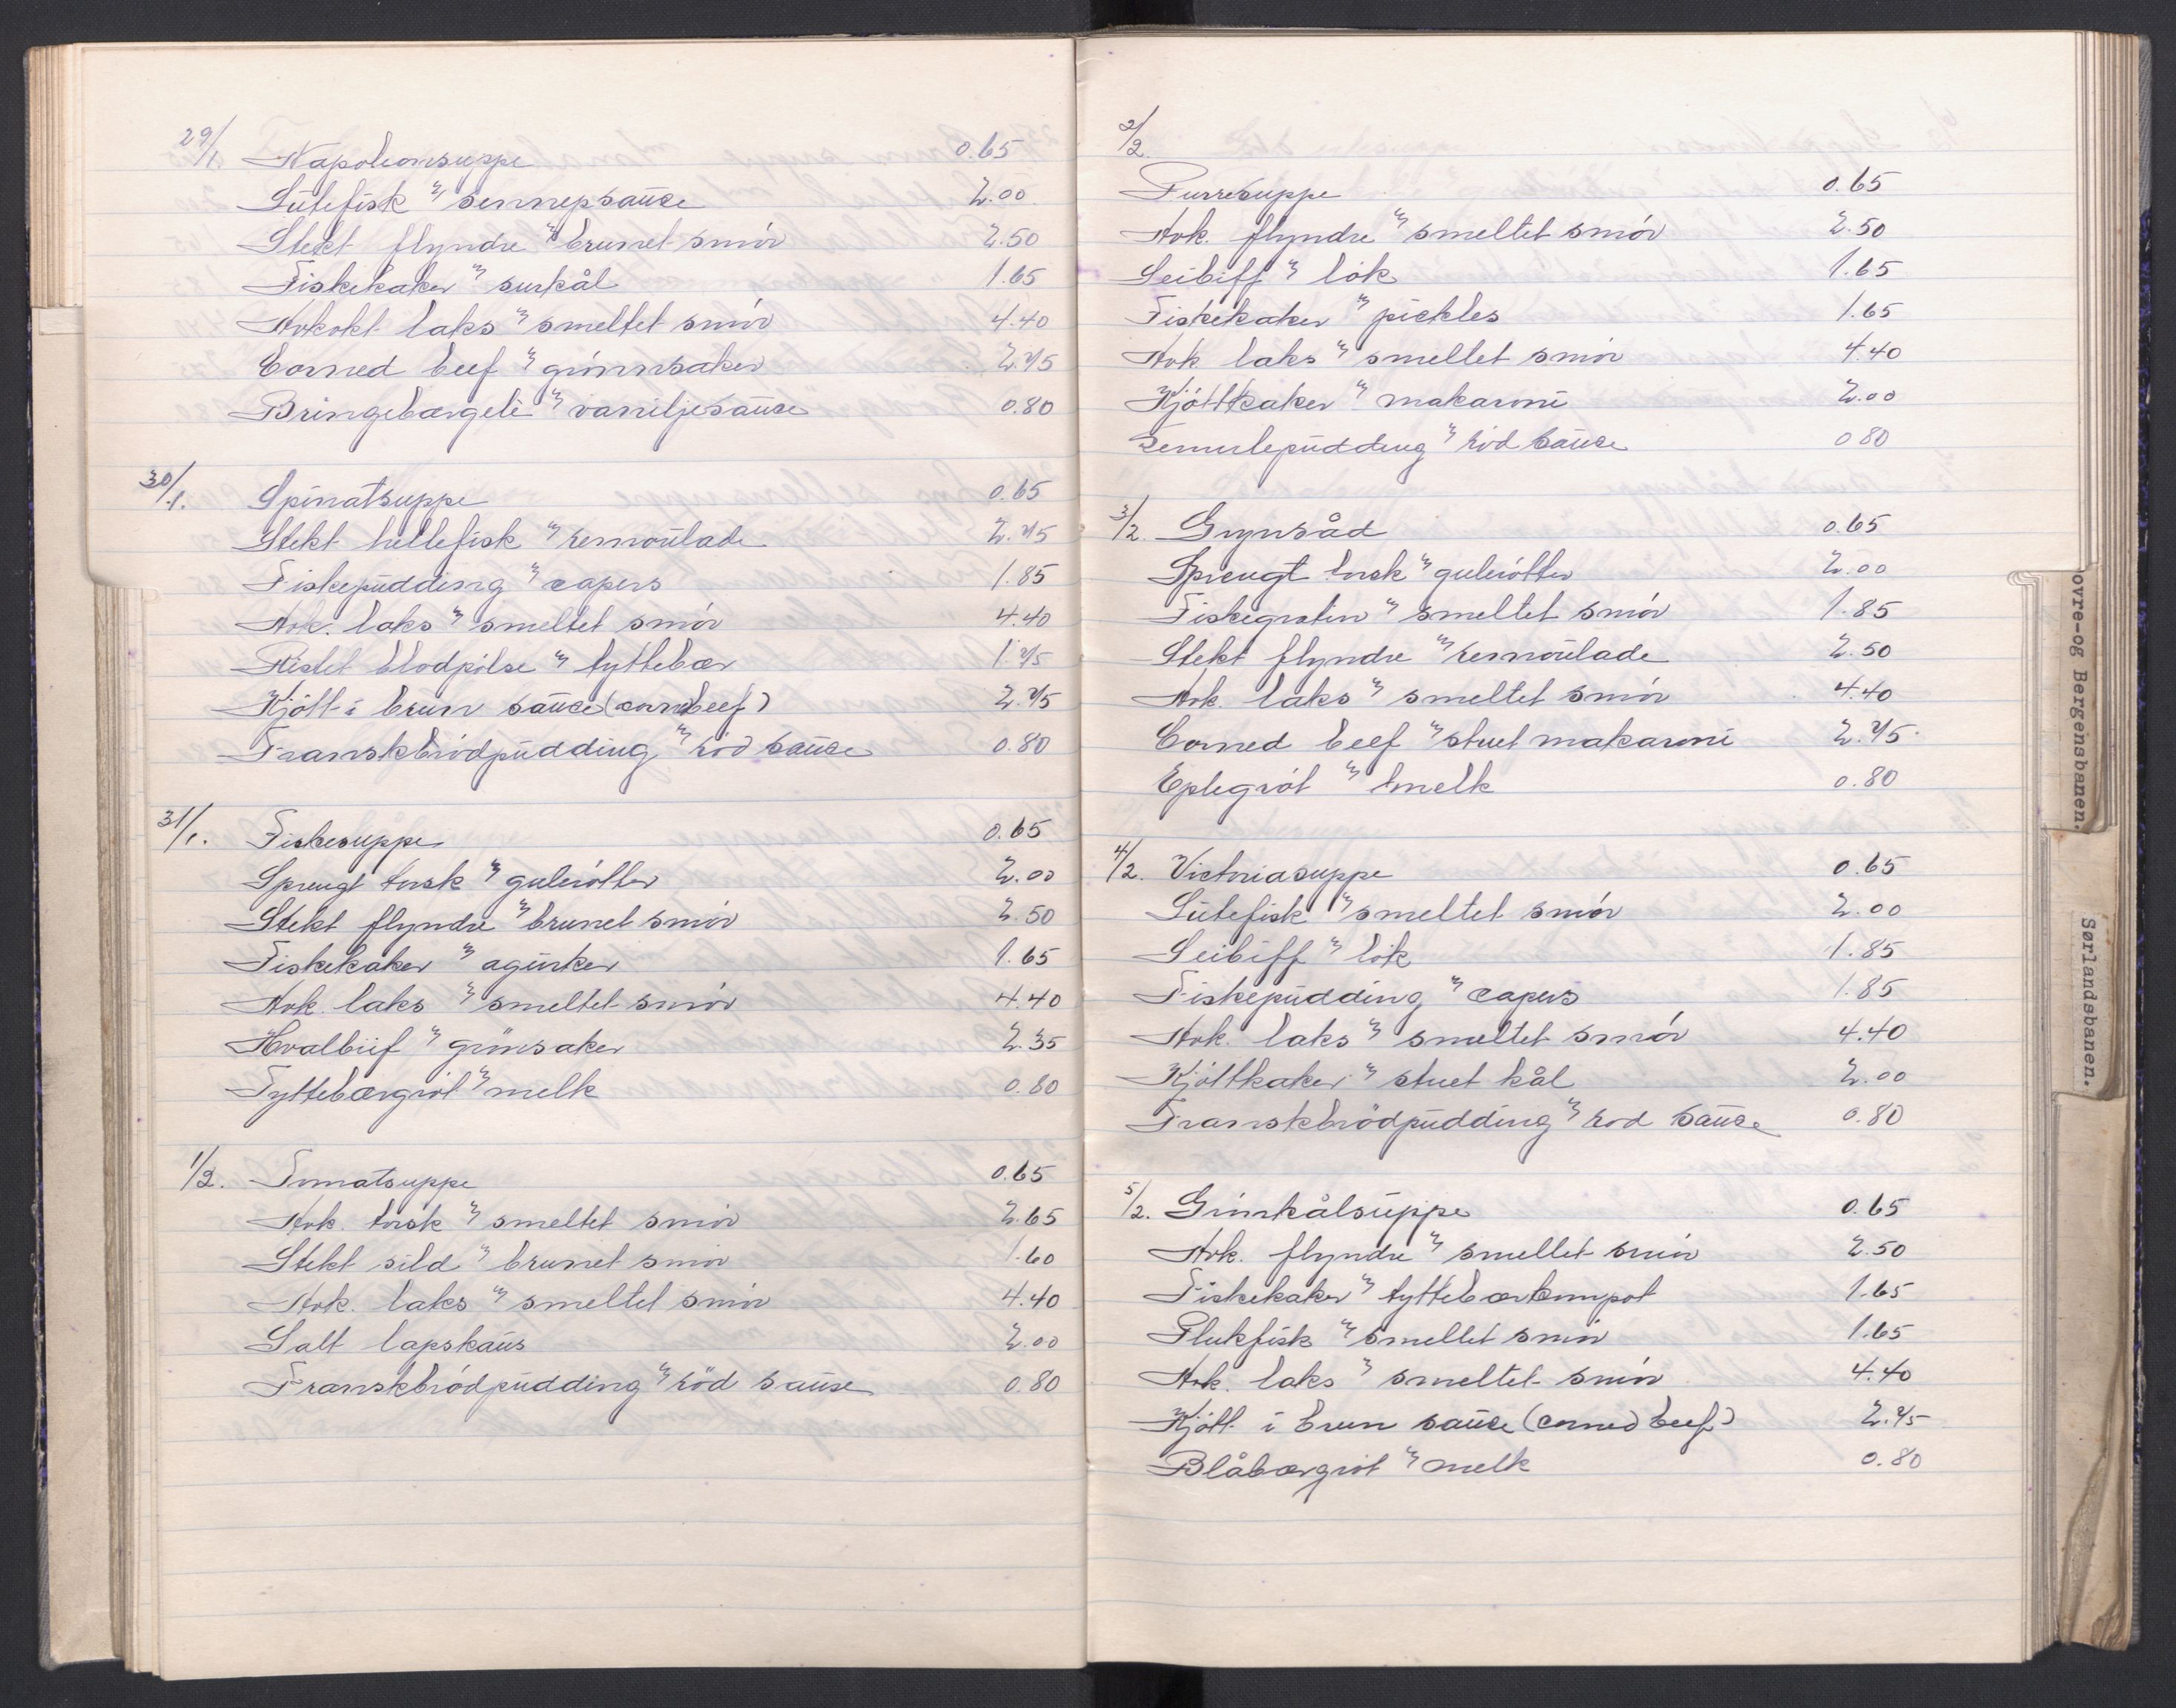 29/1. Napoleonsuppe 0.65
Lutefisk m sennepsause 2.00
Stekt flyndre m brunet smör 2.50
Fiskekaker m surkål 1.65
Avkokt laks m smeltet smör 4.40
Corned beef m grönnsaker 2.75
Bringebærgele m vaniljesause 0.80
30/1. Spinatsuppe 0.65
Stekt hellefisk m remoulade 2.75
Fiskepudding m capers 1.85
Avk. laks m smeltet smör 4.40
Ristet blodpölse m tyttebær 1.75
Kjött i brun sause (corned beef) 2.75
Franskbrödpudding m röd sause 0.80
31/1. Fiskesuppe 0.65
Sprengt torsk m gulerötter 2.00
Stekt flyndre m brunet smör 2.50
Fiskekaker m agurker 1.65
Avk. laks m smeltet smör 4.40
Hvalbiff m grönsaker 2.35
Tyttebærgröt m melk 0.80
1/2. Tomatsuppe 0.65
Avk. torsk m smeltet smör 2.65
Stekt sild m brunet smör 1.60
Avk. laks m smeltet smör 4.40
Salt lapskaus 2.00
Franskbrödpudding m röd sause 0.80
2/2.
Purresuppe 0.65
Avk. flyndre m smeltet smör 2.50
Seibiff m lök 1.65
Fiskekaker m pickles 1.65
Avk laks m smeltet smör 4.40
Kjöttkaker m makaroni 2.00
Semulepudding m röd sause 0 80
3/2. Grynsåd 0.65
Sprengt torsk m gulerötter 2.00
Fiskegratin m smeltet smör 1.85
Stekt flyndre m remoulade 2.50
Avk. laks m smeltet smör 4.40
Corned beef m stuet makaroni 2.75
Eplegröt m melk 0.80
4/2. Victoriasuppe 0.65
Lutefisk m smeltet smör 2.00
Seibiff m lök 1.85
Fiskepudding m capers 1.85
Avk. laks m smeltet smör 4.40
Kjöttkaker m stuet kål 2.00
Franskbrödpudding m rod sause 0.80
5/2. Grönkålsuppe 0.65
Avk. flyndre m smeltet smör 2.50
Fiskekaker m tyttebærkompot 1.65
Plukfisk m smeltet smör 1.65
Avk. laks m smeltet smör 4.40
Kjött i brun sause (corned beef) 2.75
Blåbærgröt m melk 0.80
ovre-og Bergensbanen.
Sørlandsbanen.